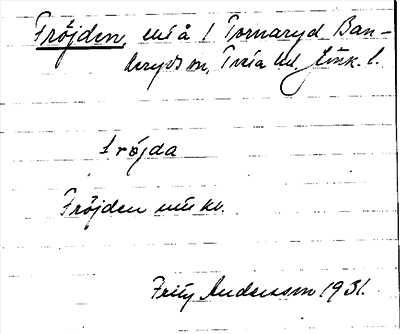 Fröjden, utå 1 Tornaryd Ban-
keryds sn, Tveta hd. Jönk. l.
fröjda
Fröjden
Fritz Andersson 1931.